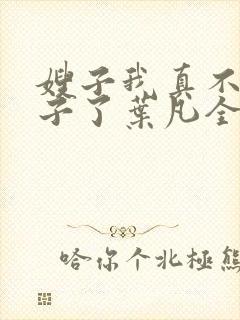 嫂子我真不
子了葉凡全
哈你个北極熊